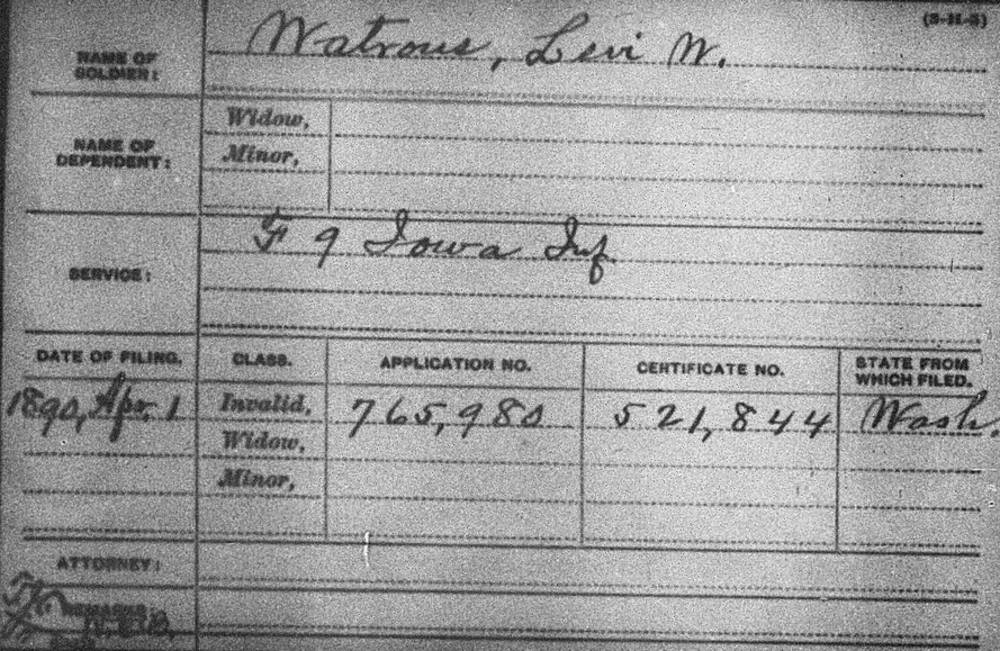 (3-H-3)
NAME OF SOLDIER: Watrous, Levi W.
NAME OF DEPENDENT: Widow,
Minor,
SERVICE: F 9 Iowa Inf
DATE OF FILING. CLASS. APPLICATION NO. CERTIFICATE NO. STATE FROM WHICH FILED.
1890, Apr. 1 Invalid, 765,980 521,844 Wash.
Widow,
Minor,
ATTORNEY:
REMARKS: